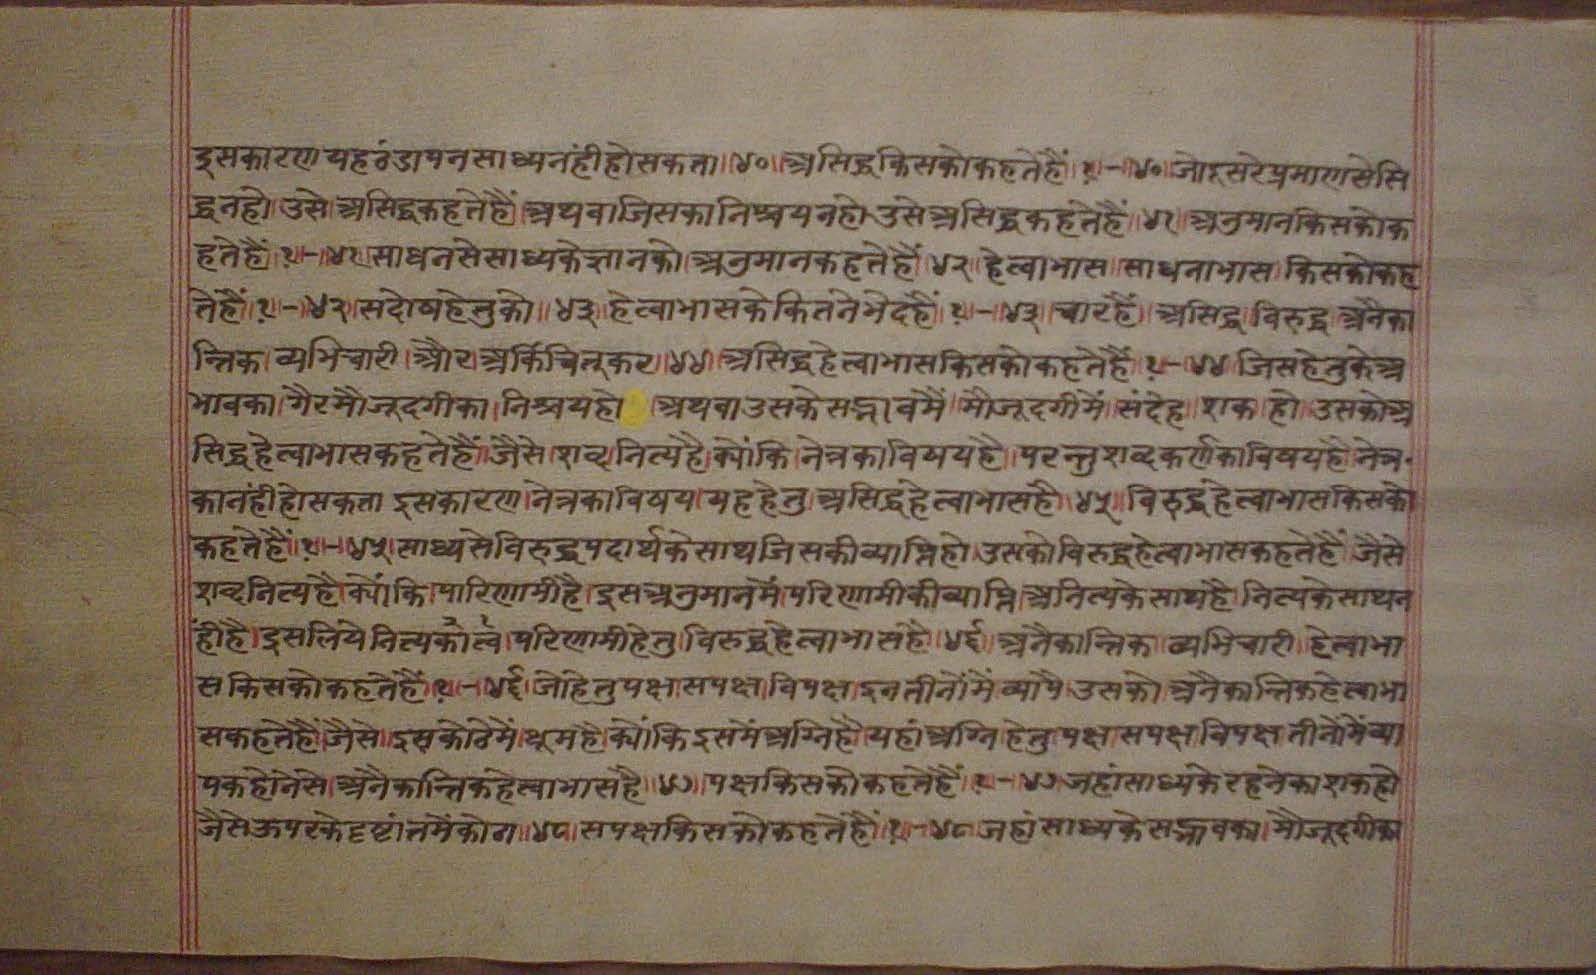 इसकारण यह ठंडापन साध्य नंही हो सकता ॥४०॥ असिद्ध किसको कहते हैं । १-।४० जो दूसरे प्रमाण से सि
द्ध न हो उसे असिद्ध कहते हैं अथवा जिसका निश्चय न हो उसे असिद्ध कहते हैं ॥४१॥ अनुमान किसको क
हते हैं । १-।४१ साधन से साध्य के ज्ञान को अनुमान कहते हैं ॥४२ हेत्वाभास ॥साधनाभास किसको कह
ते हैं । १-॥४२ सदोष हेतु को ॥४३ हेत्वाभास के कितने भेद हैं । १-।४३ चार हैं असिद्ध विरुद्ध अनैका
न्तिक ।व्यभिचारी ।और अकिंचित्कर ॥४४॥ असिद्ध हेत्वाभास किसको कहते हैं । १-॥४४ जिस हेतु के अ
भाव का ।गैरमौजूदगी का ।निश्चय हो ।अथवा उसके सद्भाव में ।मौजूदगी में संदेह ।शक हो उसको अ
सिद्ध हेत्वाभास कहते हैं ॥जैसे शब्द नित्य है क्योंकि नेत्र का विषय है परन्तु शब्द कर्ण का विषय है नेत्र
का नंही हो सकता इसकारण नेत्र का विषय यह हेतु असिद्ध हेत्वाभास है ॥४५॥ विरुद्ध हेत्वाभास किसको
कहते हैं । १-॥४५ साध्य से विरुद्ध पदार्थ के साथ जिसकी व्याप्ति हो उसको विरुद्ध हेत्वाभास कहते हैं जैसे
शब्द नित्य है क्योंकि पारिणामी है इस अनुमान में परिणामी की व्याप्ति अनित्य के साथ है नित्य के साथ न
ंही है इसलिये नित्यत्व का परिणामी हेतु विरुद्ध हेत्वाभास है ॥४६॥ अनैकान्तिक ।व्यभिचारी हेत्वाभा
स किसको कहते हैं । १-॥४६ जो हेतु पक्ष ।सपक्ष ।विपक्ष इन तीनों में व्यापै उसको अनैकान्तिक हेत्वाभा
स कहते हैं ॥जैसे इस कोठे में धूम है क्योंकि इसमें अग्नि है यहां अग्नि हेतु पक्ष सपक्ष विपक्ष तीनों में व्या
पक होने से अनैकान्तिक हेत्वाभास है ॥४७॥ पक्ष किसको कहते हैं । १-।४७ जहां साध्य के रहने का शक हो
जैसे ऊपर के दृष्टांत में कोठा ॥४८॥ सपक्ष किसको कहते हैं । १-॥४८ जहां साध्य के सद्भाव का ।मौजूदगी का